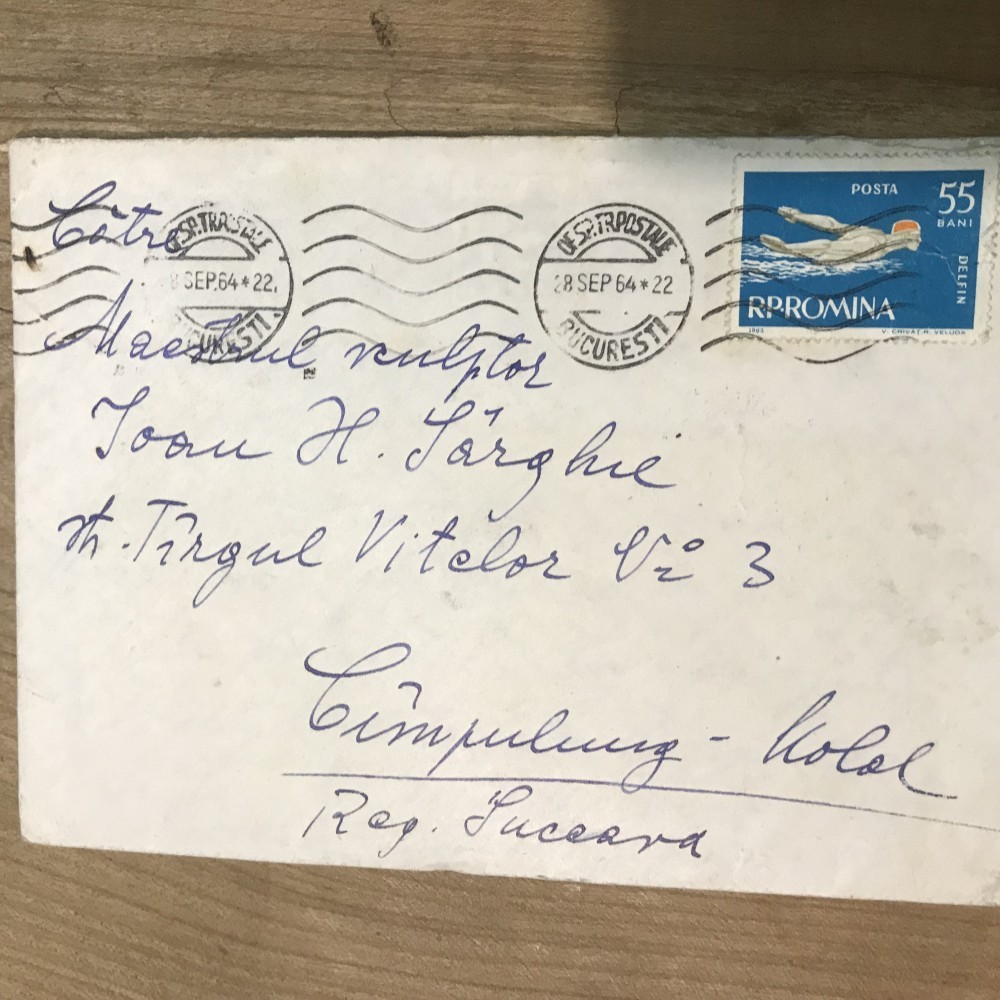 Cãtre
OF.SP.TR.POSTALE
28 SEP.64*22
BUCURESTI
OF.SP.TR.POSTALE
28 SEP 64*22
BUCURESTI
POSTA
55
BANI
DELFIN
R.P.ROMINA
1963
V. CHIVAT.R. VELUDA
Maestrul sculptor
Ioan H. Sârghie
str. Tîrgul Vitelor No 3
Cîmpulung - Mold
Reg. Suceava